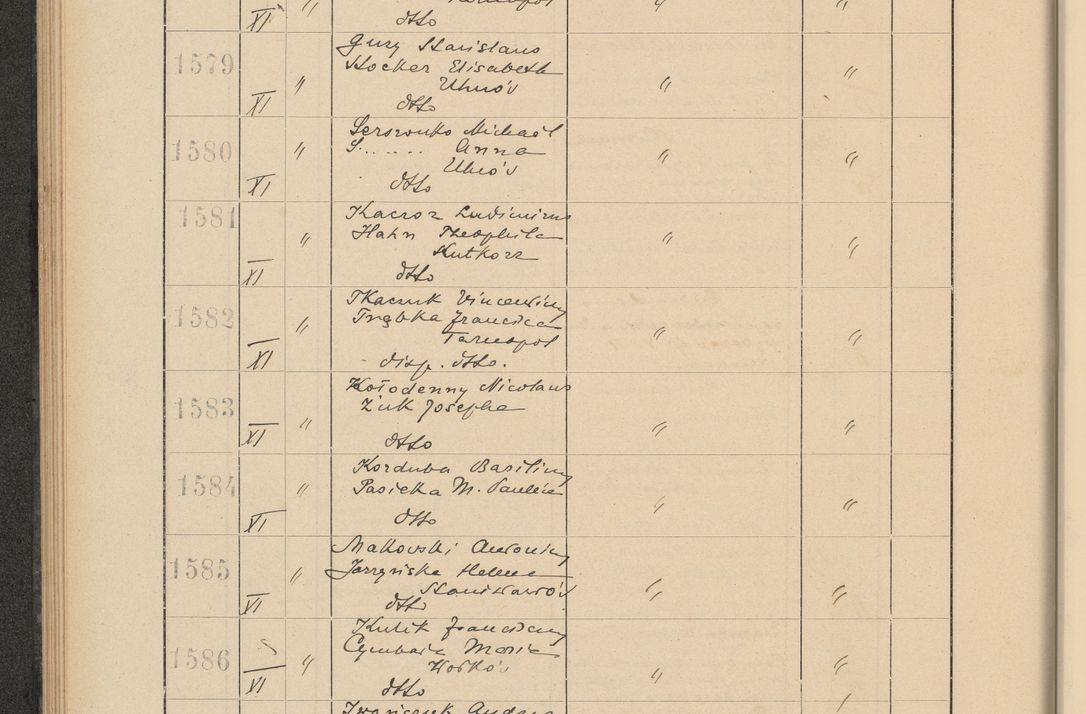 Tarnopol 〃 〃
XI 〃 dtto
Gury Stanislaus
1579 Stocker Elisabeth 〃
〃 Uhnów 〃
XI dtto
Serowko Michaël
1580 〃 S...... Anna 〃 〃
Uhnów
XI dtto
1581 Kacroz Ladimirus
〃 Hahn Theophila 〃 〃
Kutkorz
XI dtto
Tkaczuk Vincentius
1582 〃 Trąbka Francisca 〃 〃
Tarnopol
XI disp. dtto.
Kołodenny Nicolaus
1583 Żuk Josepha
〃 〃 〃
XI dtto
Korduba Basilius
1584 〃 Pasieka M. Paulina
〃 〃
XI dtto
Makovski Antonius
1585 〃 Jarzyńska Helena
Stanisławów 〃 〃
XI dtto
Kulik Franciscus
1586 Cymbała Maria
〃 〃 〃
XI dtto
Iwańczuk Andreas